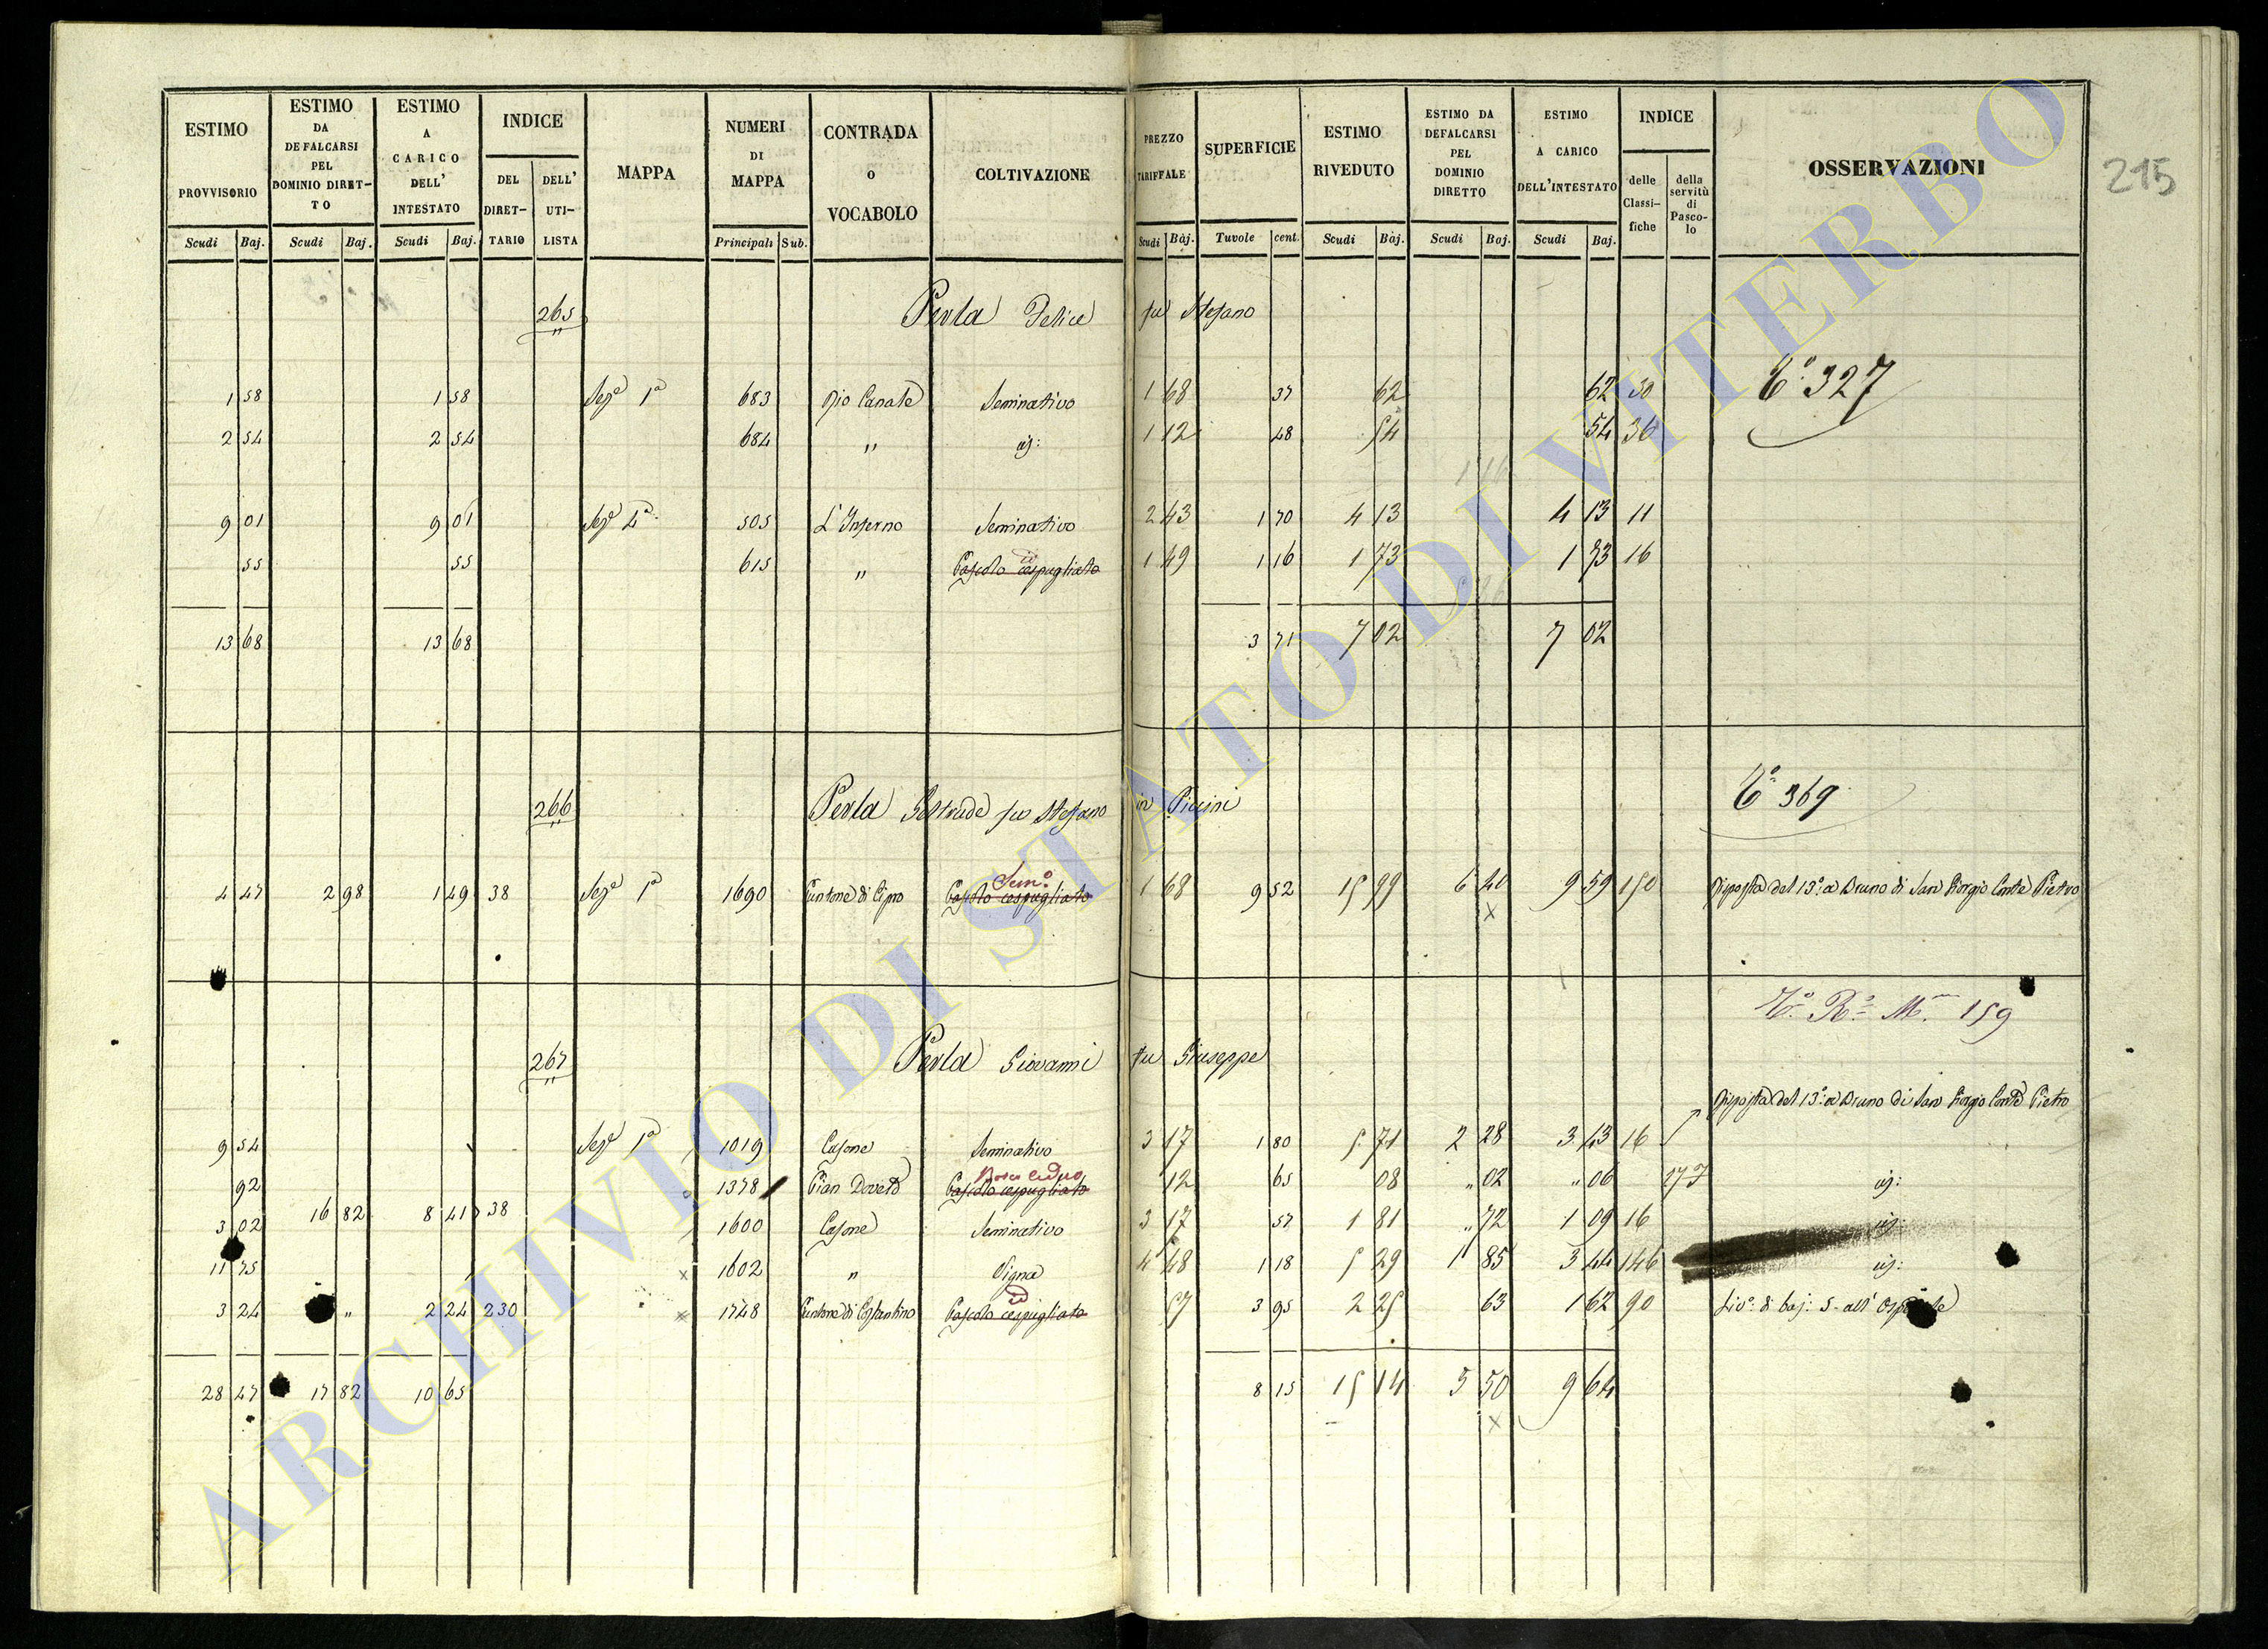 ESTIMO PROVVISORIO Scudi Baj.
ESTIMO DA DEFALCARSI PEL DOMINIO DIRET-TO Scudi Baj.
ESTIMO A CARICO DELL' INTESTATO Scudi Baj.
INDICE DEL DIRET-TARIO DELL' UTI-LISTA
MAPPA
NUMERI DI MAPPA Principali Sub.
CONTRADA O VOCABOLO
COLTIVAZIONE
PREZZO TARIFFALE Scudi Baj.
SUPERFICIE Tavole cent.
ESTIMO RIVEDUTO Scudi Baj.
ESTIMO DA DEFALCARSI PEL DOMINIO DIRETTO Scudi Baj.
ESTIMO A CARICO DELL'INTESTATO Scudi Baj.
INDICE delle Classi-fiche della servitù di Pasco-lo
OSSERVAZIONI
215
265 Perla Felice fu Stefano
1 58 1 58 Sezе 1a 683 Rio Canale Seminativo 1 68 37 62 62 30 Co 327
2 54 2 54 684 " id: 1 12 48 54 54 36
9 01 9 01 Seze 4a 505 L'Inferno Seminativo 2 43 1 70 4 13 4 13 11
55 55 615 " id Pascolo cespugliato 1 49 1 16 1 73 1 73 16
13 68 13 68 3 71 7 02 7 02
266 Perla Geltrude fu Stefano in Piccini Co 369
4 47 2 98 1 49 38 Seze 1a 1690 Puntone di Cipro Semo Pascolo cespugliato 1 68 9 52 15 99 6 40 9 59 150 Risposta del 13o a Bruno di San Giorgio Conte Pietro
x
Co Ro M. 159
267 Perla Giovanni fu Giuseppe
Risposta del 13o a Bruno di San Giorgio Conte Pietro
9 54 Seze 1a 1019 Casone Seminativo 3 17 1 80 5 71 2 28 3 43 16
92 1378 Pian Doveto Bosco ceduo Pascolo cespugliato 12 65 08 " 02 " 06 id:
3 02 16 82 8 41 38 1600 Casone Seminativo 3 17 57 1 81 " 72 1 09 16 id:
11 75 x 1602 " Vigna 4 48 1 18 5 29 1 85 3 44 146 id:
3 24 " 2 24 230 x 1748 Puntone di Costantino id Pascolo cespugliato 57 3 95 2 25 63 1 62 90 Livo: di baj: 5 all'Ospedale
28 47 17 82 10 65 8 15 15 14 5 50 9 64
x
ARCHIVIO DI STATO DI VITERBO